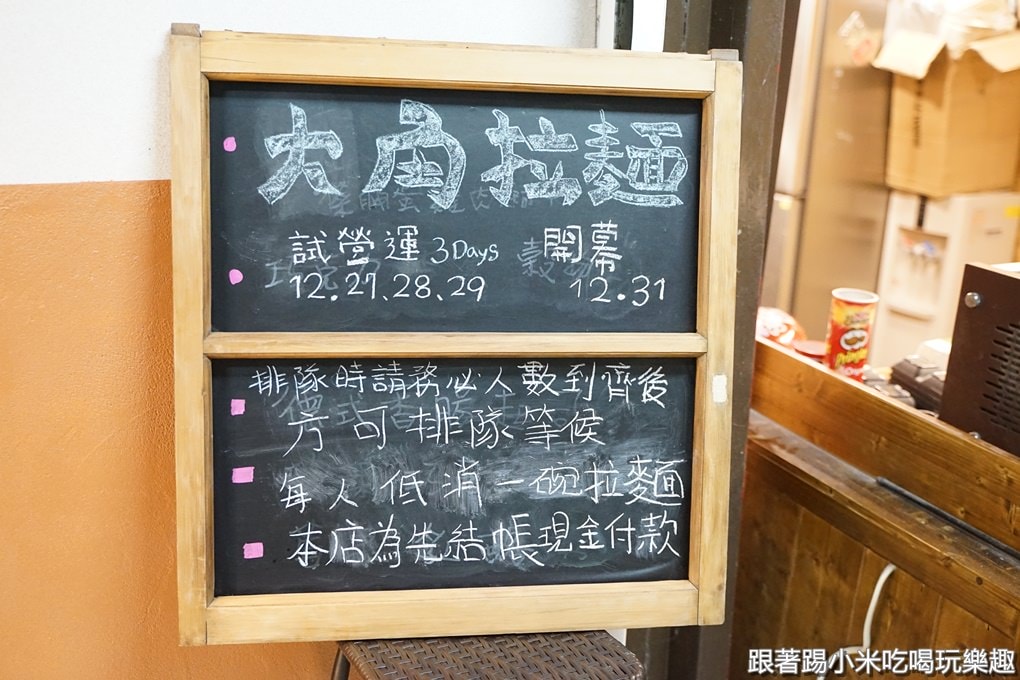 大角拉麵
試營運 3Days 開幕
12.27.28.29 12.31
排隊時請務必人數到齊後
方可排隊等候
每人低消一碗拉麵
本店為先結帳現金付款
Pringles
跟著踢小米吃喝玩樂趣